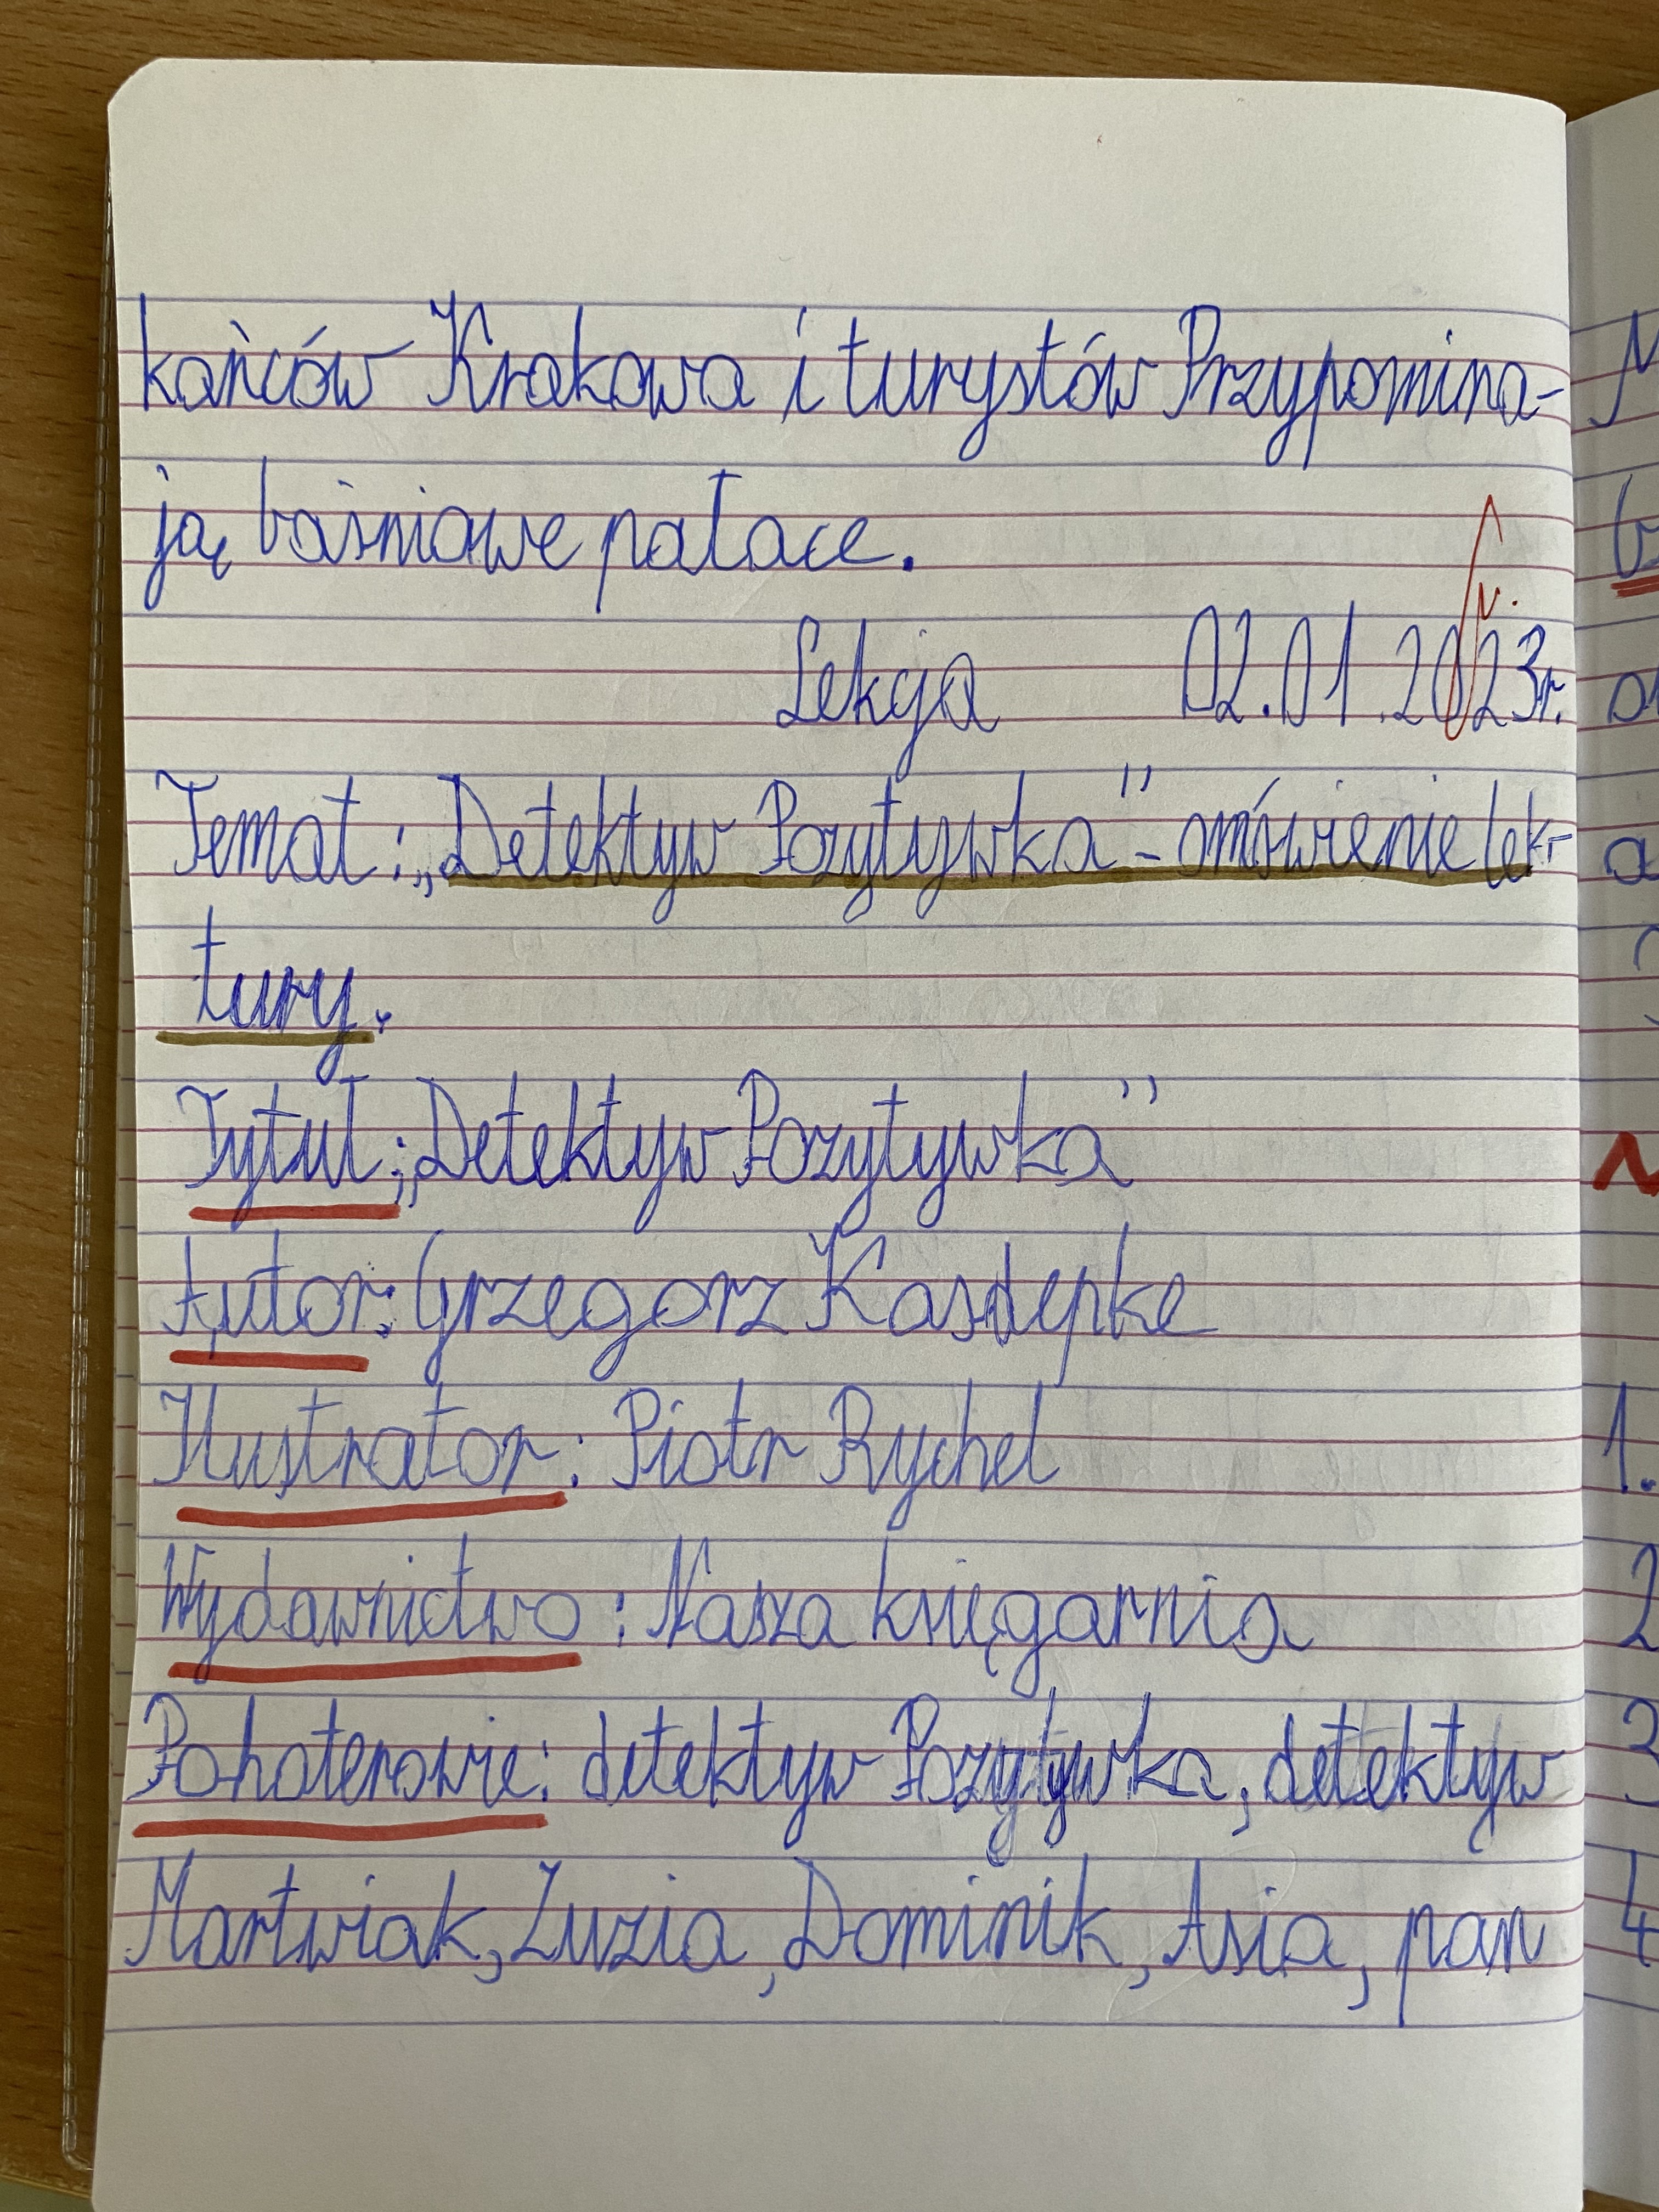 kańców Krakowa i turystów Przypomina-
ją baśniowe pałace.
Lekcja 02.01.2023r.
Temat: „Detektyw Pozytywka" - omówienie lek-
tury.
Tytuł: „Detektyw Pozytywka"
Autor: Grzegorz Kasdepke
Ilustrator: Piotr Rychel
Wydawnictwo: Nasza księgarnia
Bohaterowie: detektyw Pozytywka, detektyw
Martwiak, Zuzia, Dominik, Asia, pan